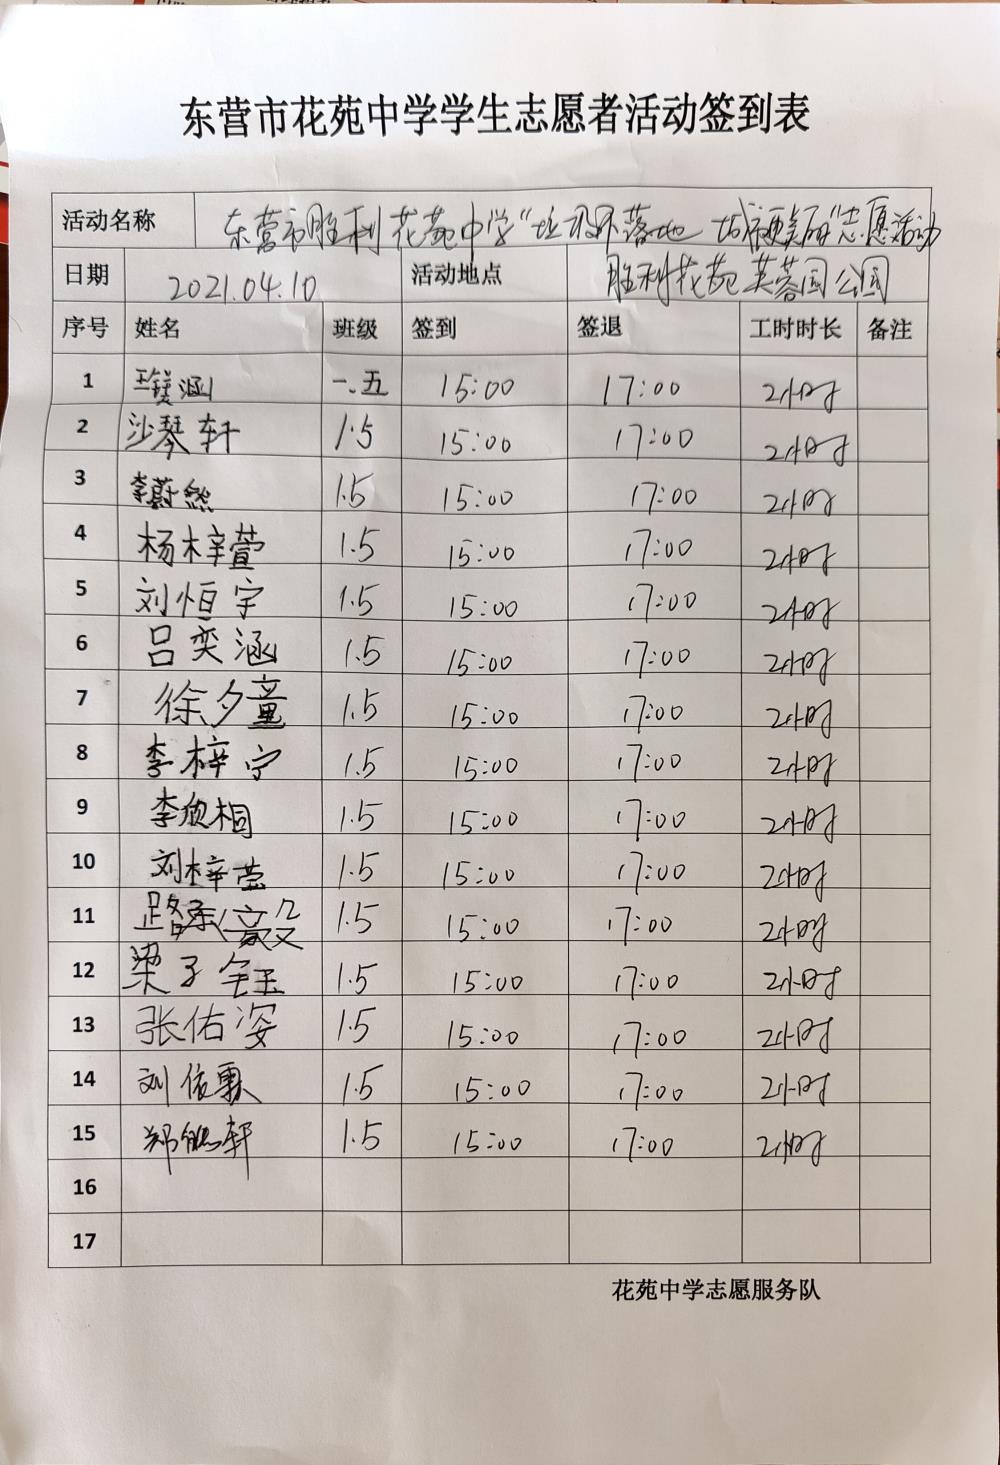 东营市花苑中学学生志愿者活动签到表
活动名称 东营市胜利花苑中学"垃圾不落地 城市更美丽"志愿活动
日期 2021.04.10 活动地点 胜利花苑芙蓉园公园
序号 姓名 班级 签到 签退 工时时长 备注
1 涵 一.五 15:00 17:00 2小时
2 沙琴轩 1.5 15:00 17:00 2小时
3 李蔚然 1.5 15:00 17:00 2小时
4 杨梓萱 1.5 15:00 17:00 2小时
5 刘恒宇 1.5 15:00 17:00 2小时
6 吕奕涵 1.5 15:00 17:00 2小时
7 徐夕童 1.5 15:00 17:00 2小时
8 李梓宁 1.5 15:00 17:00 2小时
9 李欣桐 1.5 15:00 17:00 2小时
10 刘梓莹 1.5 15:00 17:00 2小时
11 路 1.5 15:00 17:00 2小时
12 梁子钰 1.5 15:00 17:00 2小时
13 张佑姿 1.5 15:00 17:00 2小时
14 刘依 1.5 15:00 17:00 2小时
15 郑 轩 1.5 15:00 17:00 2小时
16
17
花苑中学志愿服务队